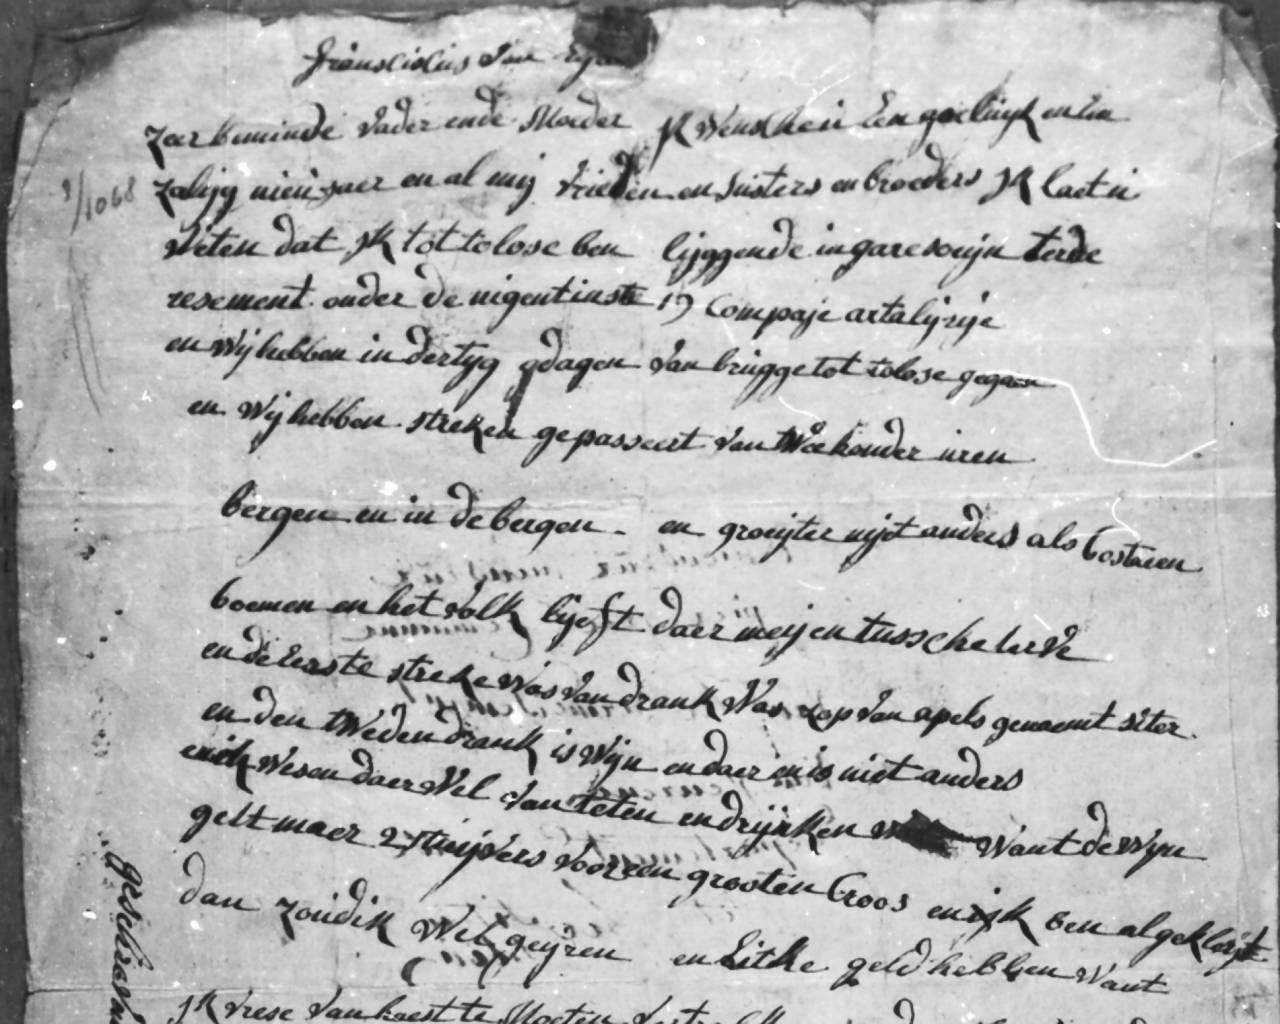 fransciscus van
zeer beminde vader ende Moeder jk Wensche u Een geeluijk en Een
zalijg nieu jaer en al mij vrieden en susters en broeders jk laet u
Weten dat jk tot tolose ben lijggende in garesoujn terde
resement onder de nigentinste 19 Compaje artalijrije
en Wij hebben in dertyg gdagen van brugge tot tolose gegaen
en Wij hebben streken gepasseert van twee honder uren
bergen en in de bergen en groijter nijt anders als Costaien
boemen en het volk lijeft daer meij en tussche
en de Eerste streke Was van drank Was zop van apels genaemt siter
en den tweden drank is Wijn en daer en is niet anders
en ik Wesen daer Wel van teten en drijnken want de Wijn
gelt maer 2 stuijvers voor een grooten Croos en ijk ben al gekleijt
dan zoudik Wel geijren en litke geld hebben Want
jk vrese van haest te Moeten
geschreven
3/1068